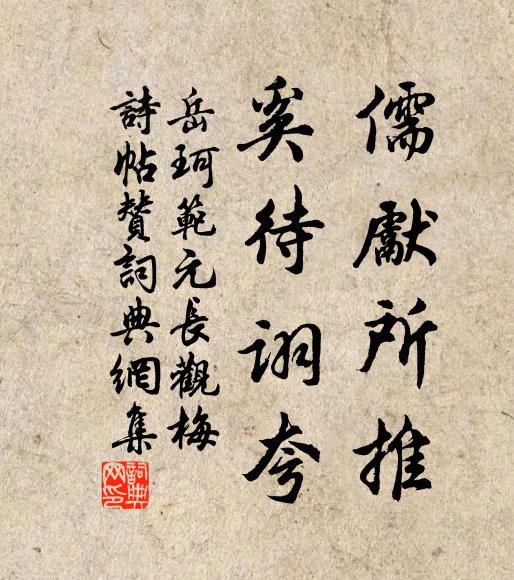 儒獻所推
奚待詡夸
岳珂範元長觀梅
詩帖贊詞典網集
詞典网印